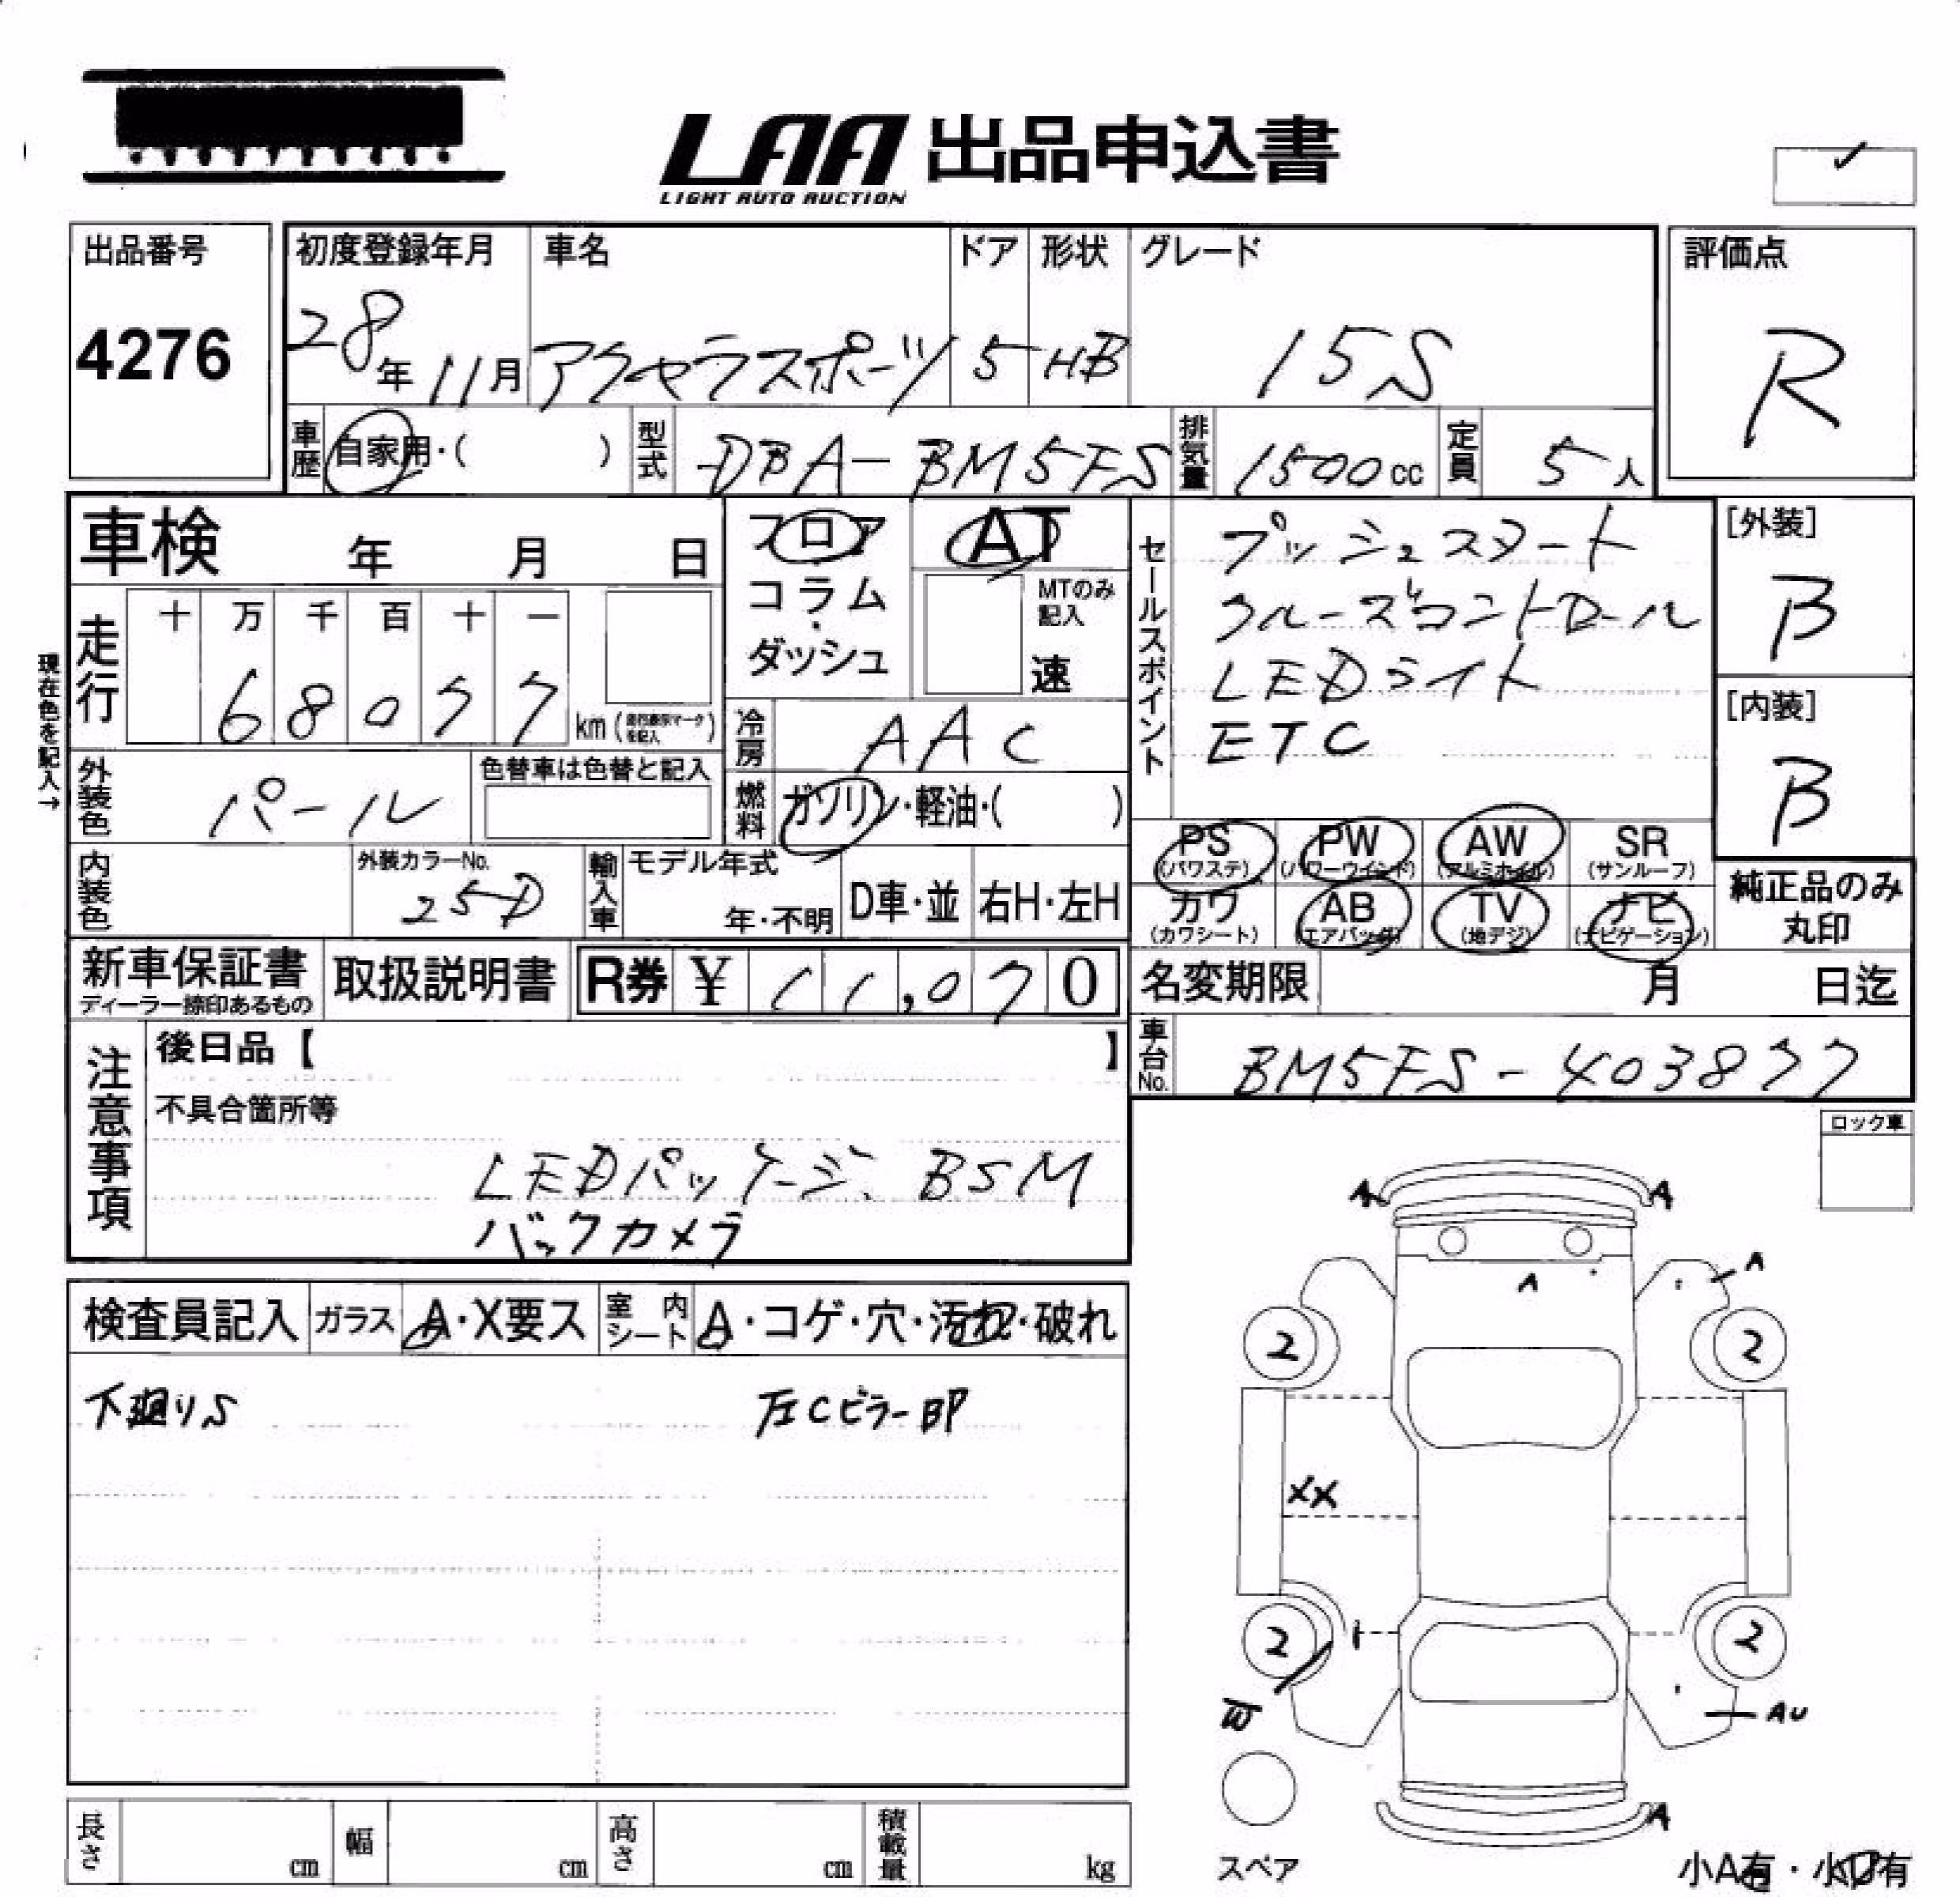 LAA 出品申込書
LIGHT AUTO AUCTION
出品番号
4276
初度登録年月
28年11月
車名
アクセラスポーツ
ドア
5
形状
HB
グレード
15S
評価点
R
車歴
自家用・( )
型式
DBA-BM5FS
排気量
1500cc
定員
5人
車検 年 月 日
フロア
コラム
・
ダッシュ
AT
MTのみ
記入
速
セールスポイント
プッシュスタート
クルーズコントロール
LEDライト
ETC
[外装]
B
[内装]
B
現在色を記入→
走行
十 万 千 百 十 一
6 8 0 7 7 km
冷房
AAC
外装色
パール
色替車は色替と記入
燃料
ガソリン・軽油・( )
内装色
外装カラーNo.
25D
輸入車
モデル年式
年・不明
D車・並
右H・左H
PS
(パワステ)
PW
(パワーウインド)
AW
(アルミホイル)
SR
(サンルーフ)
カワ
(カワシート)
AB
(エアバッグ)
TV
(地デジ)
ナビ
(ナビゲーション)
純正品のみ
丸印
新車保証書
ディーラー捺印あるもの
取扱説明書
R券 ¥ 11,070
名変期限 月 日迄
車台No.
BM5FS-403877
注意事項
後日品【 】
不具合箇所等
LEDパッケージ、BSM
バックカメラ
ロック車
検査員記入
ガラス
A・X要ス
室内シート
A・コゲ・穴・汚れ・破れ
下廻りS
左Cピラー凹
A
A
A
A
2
2
XX
2
2
W
AU
A
スペア
小A有・小U有
長さ cm
幅 cm
高さ cm
積載量 kg